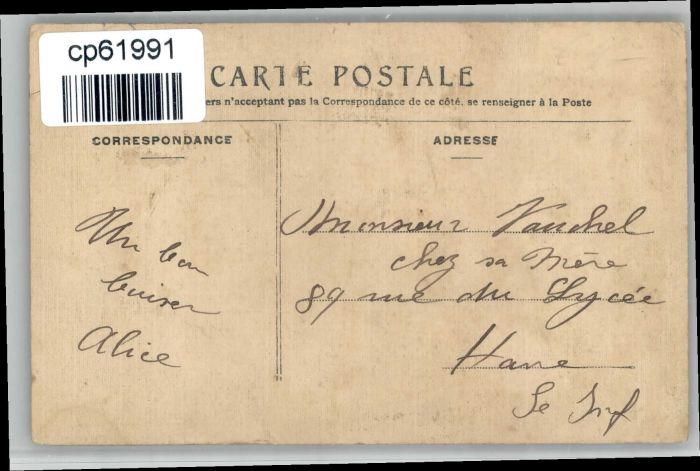 cp61991
CARTE POSTALE
ers n'acceptant pas la Correspondance de ce côté, se renseigner à la Poste
CORRESPONDANCE
ADRESSE
Un bon
baiser
Alice
Monsieur Vauchel
chez sa mère
89 rue du Lycée
Havre
Se Inf